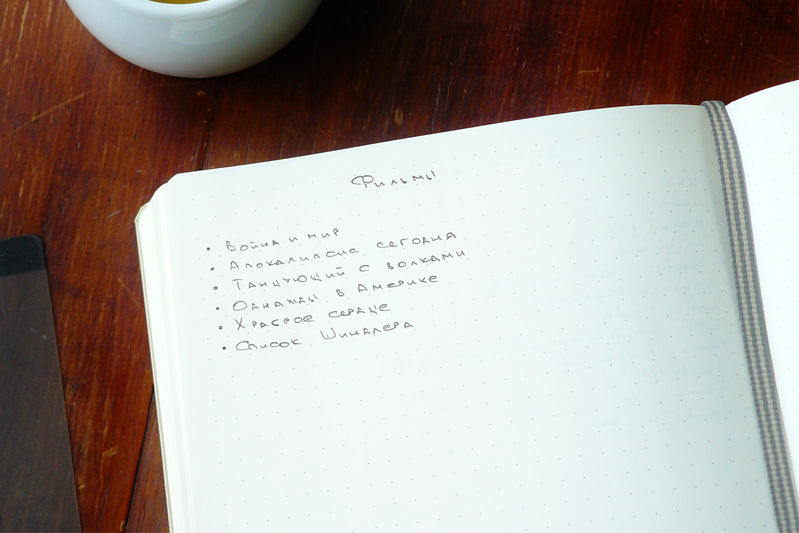 Фильмы
• Война и мир
• Апокалипсис сегодня
• Танцующий с волками
• Однажды в Америке
• Храброе сердце
• Список Шиндлера